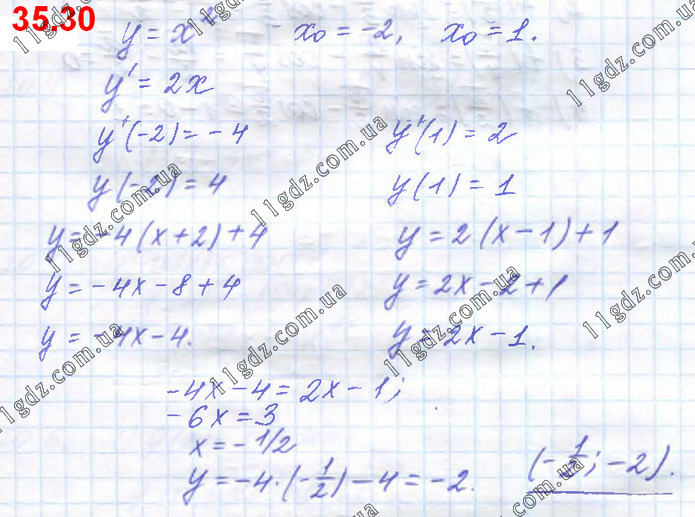 35,30
y = x² x₀ = -2, x₀ = 1.
y' = 2x
y'(-2) = -4 y'(1) = 2
y(-2) = 4 y(1) = 1
y = -4(x+2)+4 y = 2(x-1)+1
y = -4x-8+4 y = 2x-2+1
y = -4x-4. y = 2x-1.
-4x-4 = 2x-1;
-6x = 3
x = -1/2
y = -4·(-1/2)-4 = -2. (-1/2; -2).
11gdz.com.ua
11gdz.com.ua
11gdz.com.ua
11gdz.com.ua
11gdz.com.ua
11gdz.com.ua
11gdz.com.ua
11gdz.com.ua
11gdz.com.ua